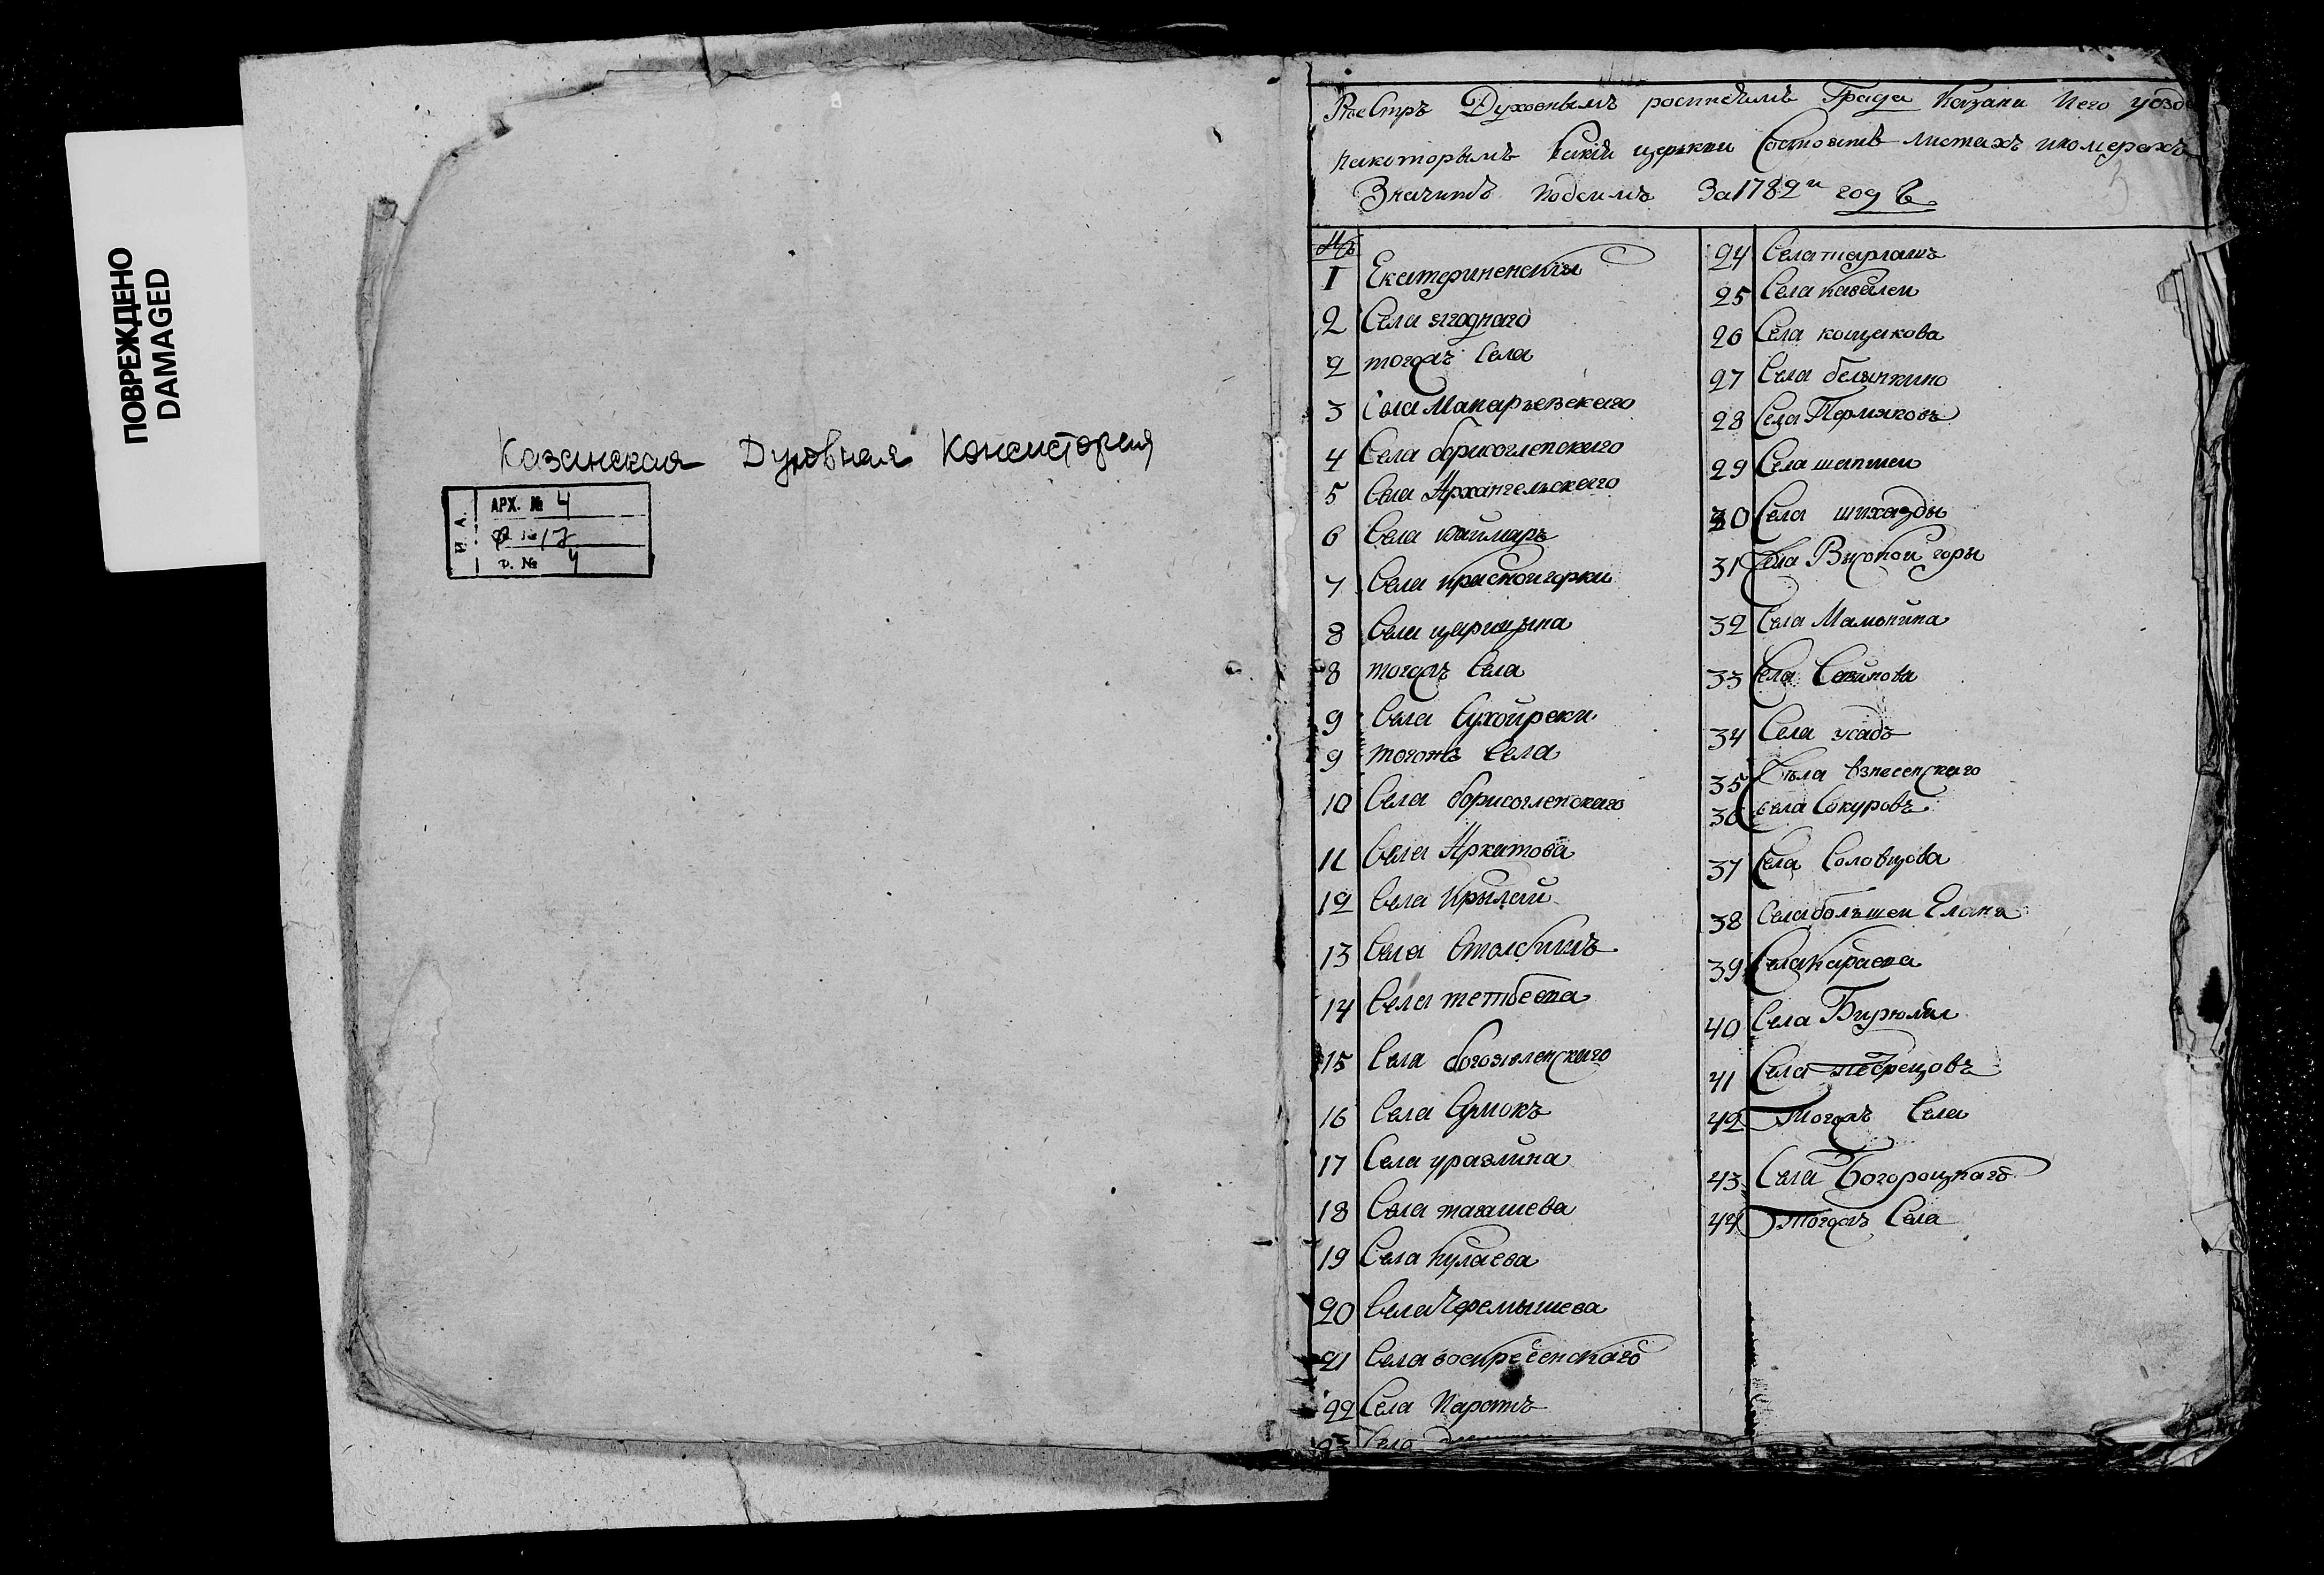 ПОВРЕЖДЕНО
DAMAGED
Казанская Духовная Консистория
И. А.
АРХ. № 4
Ф. № 17
д. № 4
Реестръ Духовнымъ росписямъ Града Казани и его уезда
на которымъ какiя церкви состоятъ листахъ и номерахъ
Значитъ подсимъ За 1782й годъ
№
1 Екатериненская
2 Села ягоднаго
2 тогожъ Села
3 Села Макарьевскаго
4 Села борисоглепскаго
5 Села Архангельскаго
6 Села каймаръ
7 Села красной горки
8 Села царицына
8 тогожъ Села
9 Села Сухой реки
9 тогожъ Села
10 Села борисоглепскаго
11 Села Аркатова
12 Села Крылай
13 Села Столбищъ
14 Села тетбеева
15 Села богоявленскаго
16 Села Ермокъ
17 Села уразлина
18 Села тагашева
19 Села кулаева
20 Села Черемышева
21 Села воскресенскаго
22 Села Паратъ
23 Села
24 Села тарлашъ
25 Села кабачеи
26 Села кощакова
27 Села белянкино
28 Села Пермяковъ
29 Села шапшеи
30 Села шихазды
31 Села Высокой горы
32 Села Мамонина
33 Села Савинова
34 Села усадъ
35 Села вznесенскаго
36 Села Сокуровъ
37 Села Соловцова
38 Села большеи Елани
39 Села караева
40 Села Бирюли
41 Села пестрецовъ
42 Тогожъ Села
43 Села Богороцкаго
44 Тогожъ Села